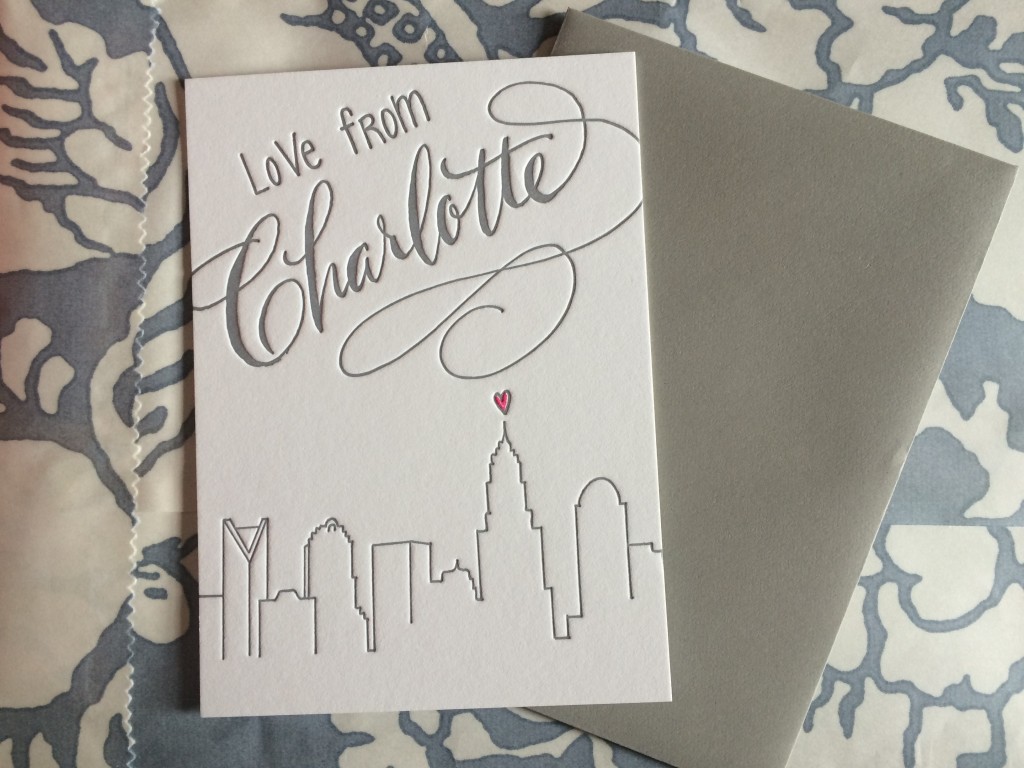 Love from
Charlotte